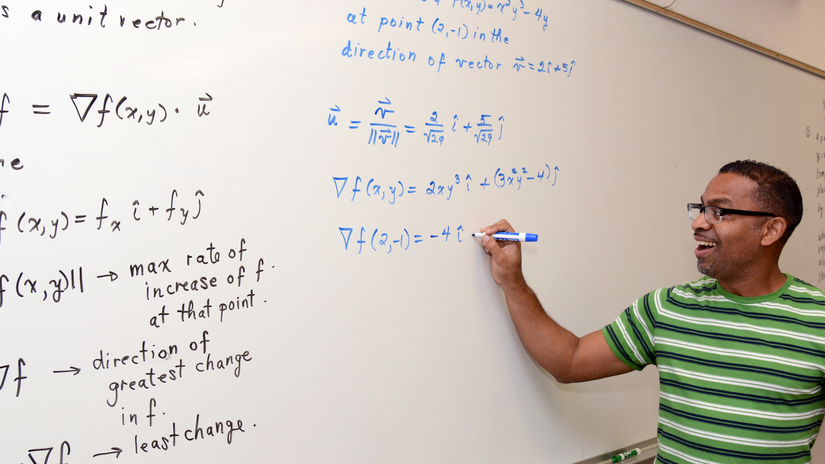 s a unit vector.
f = ∇f(x,y) · u⃗
f(x,y) = fₓ î + f_y ĵ
f(x,y)|| → max rate of
increase of f.
at that point.
∇f → direction of
greatest change
in f.
∇f → least change.
f(x,y) = x²y³ - 4y
at point (2,-1) in the
direction of vector v⃗ = 2î + 5ĵ
u⃗ = v⃗/||v⃗|| = 2/√29 î + 5/√29 ĵ
∇f(x,y) = 2xy³ î + (3x²y² - 4) ĵ
∇f(2,-1) = -4 î